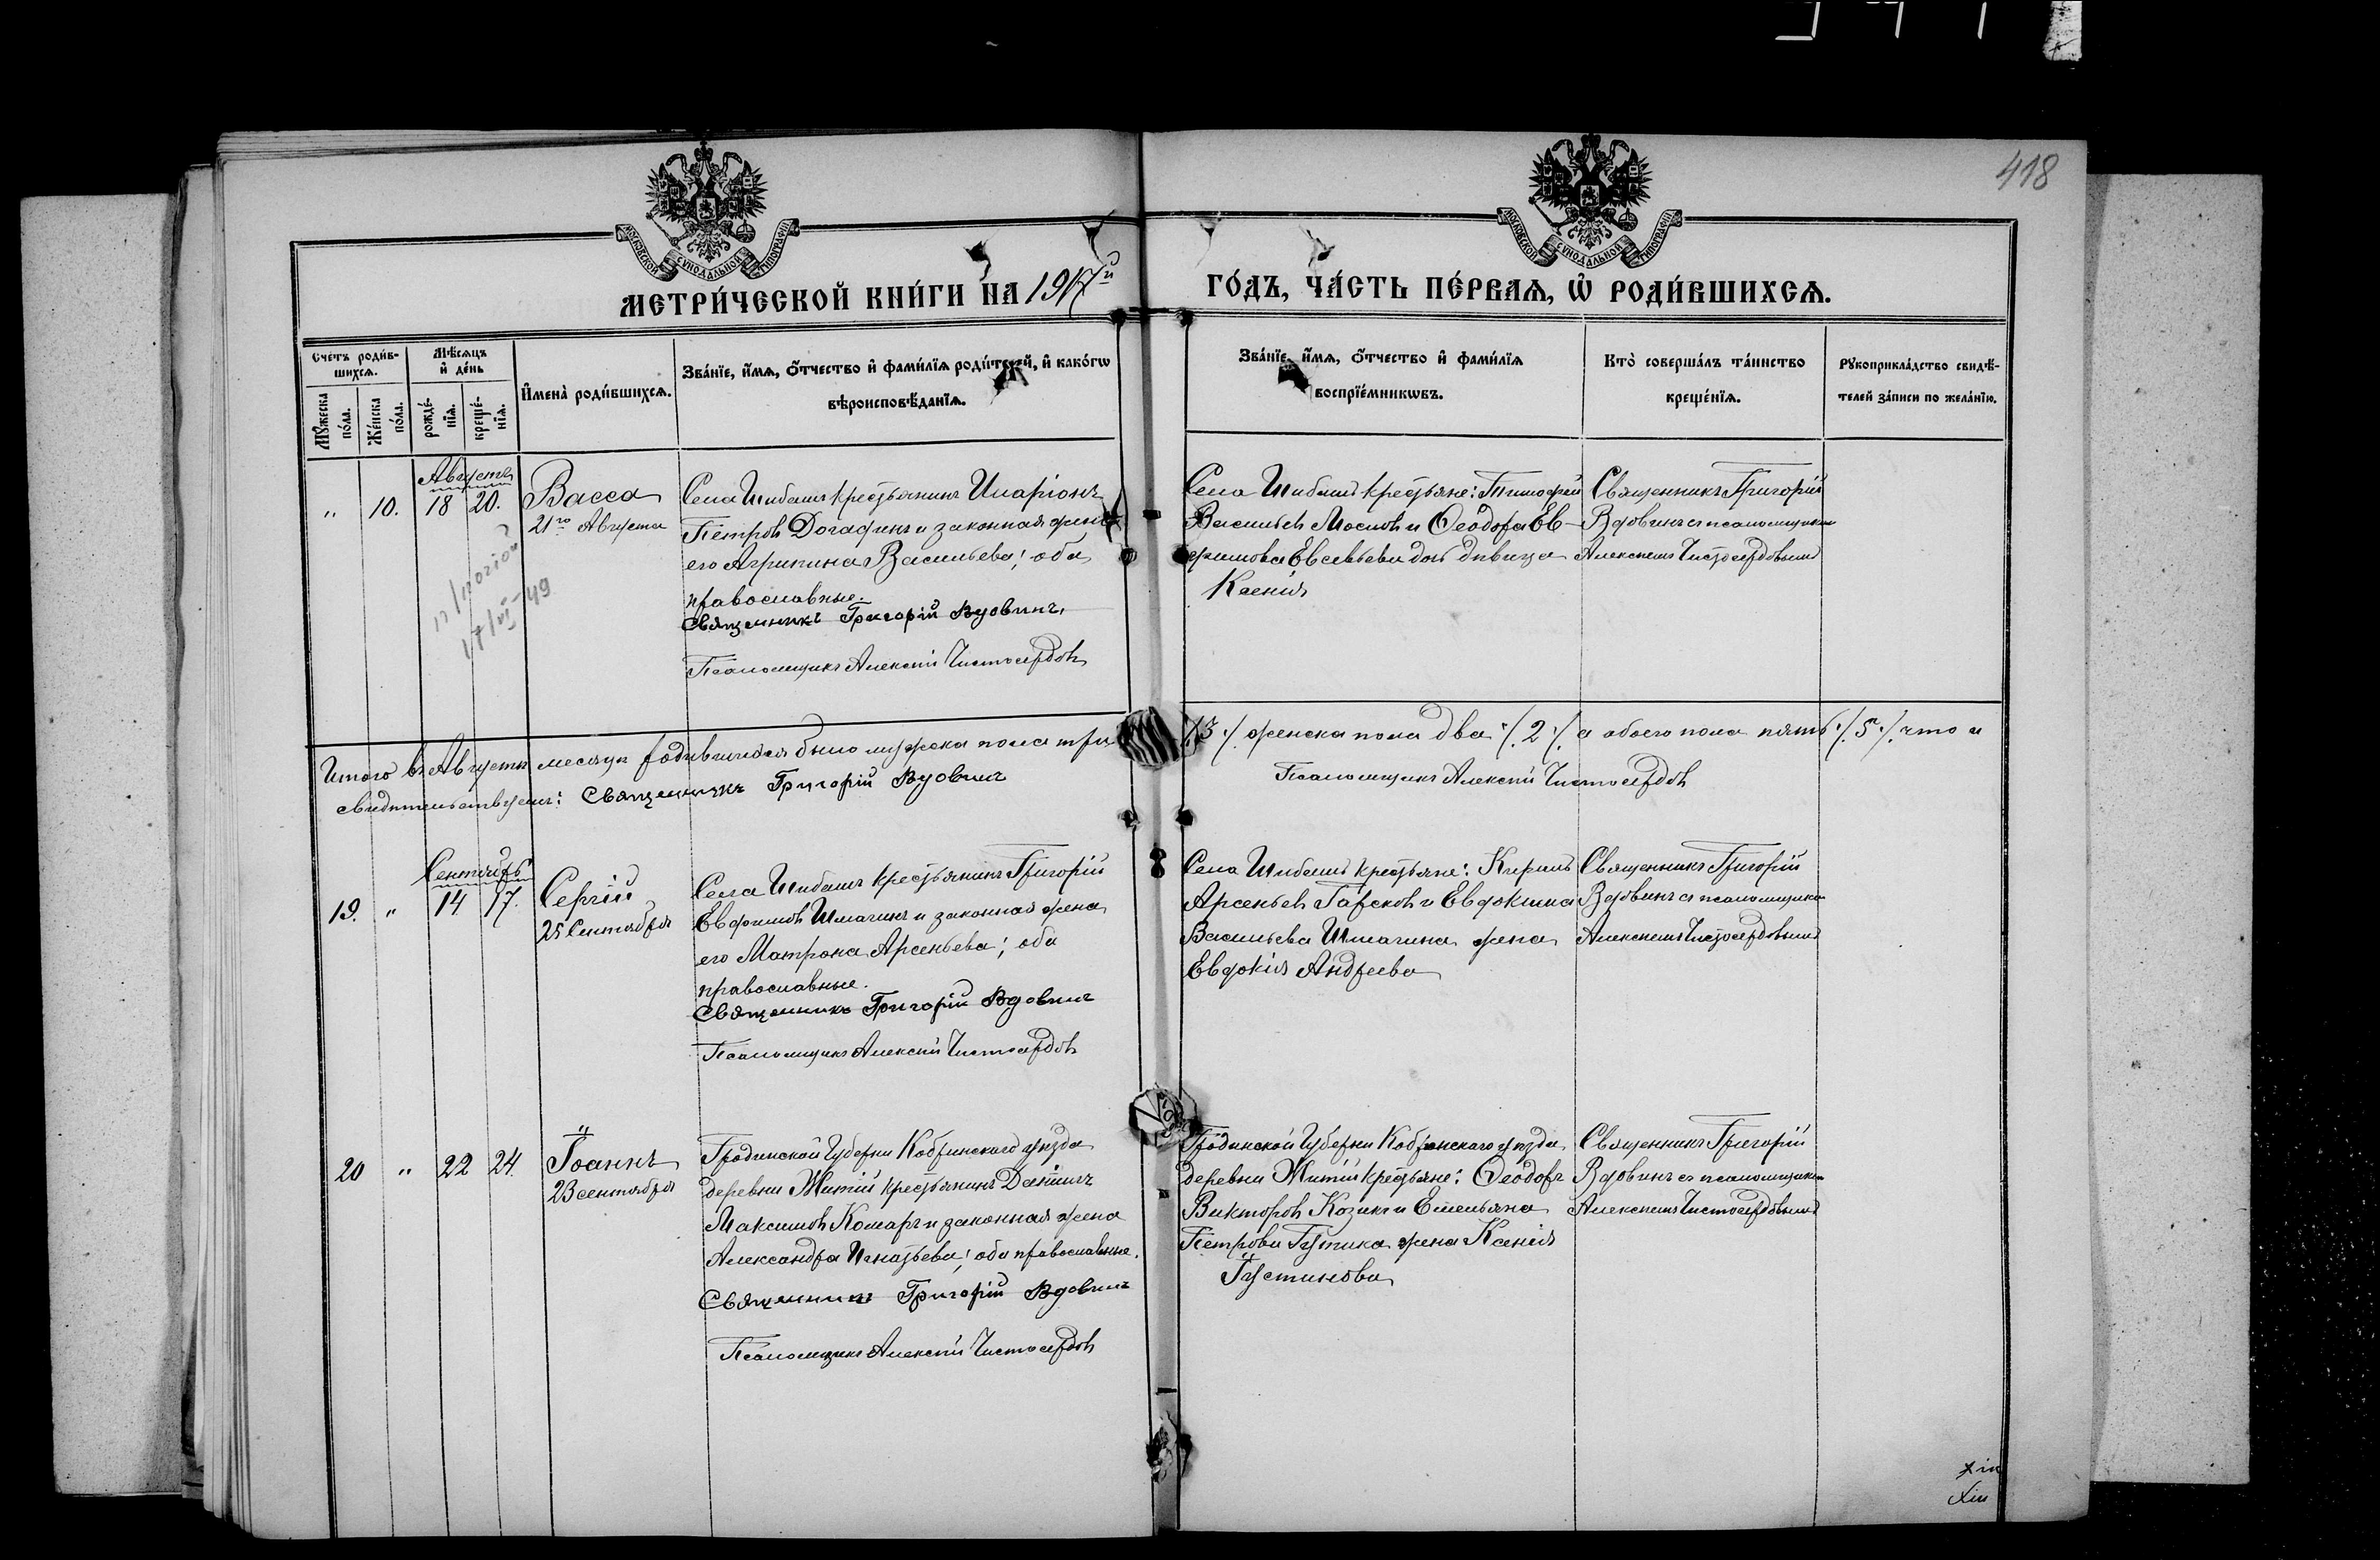 418
МОСКОВСКОЙ СУНОДАЛЬНОЙ ТИПОГРАФІИ
МОСКОВСКОЙ СУНОДАЛЬНОЙ ТИПОГРАФІИ
МЕТРИ́ЧЕСКОЙ КНИ́ГИ НА 1917й
ГО́ДЪ, ЧА́СТЬ ПЕ́РВАѦ, Ѡ РОДИ́ВШИХСѦ.
Сче́тъ роди́в-
шихсѧ.
Мꙋ́жеска по́ла.
Же́нска по́ла.
Мѣ́сѧцъ и҆ де́нь
рожде́-нїѧ.
креще́-нїѧ.
И҆мена̀ роди́вшихсѧ.
Зва́нїе, и҆́мѧ, ѻ҆́тчество и҆ фами́лїѧ роди́телей, и҆ како́гѡ
вѣроисповѣ́данїѧ.
Зва́нїе, и҆́мѧ, ѻ҆́тчество и҆ фами́лїѧ
воспрїе́мникѡвъ.
Кто̀ соверша́лъ та́инство
креще́нїѧ.
Рꙋкоприкла́дство свидѣ́-
телей за́писи по жела́нїю.
Августъ
" 10. 18 20.
Васса
21го Августа
Села Шибаши крестьянинъ Иларіонъ
Петровъ Догадинъ и законная жена
его Агрипина Васильева; оба
православные.
Священникъ Григорій Вдовинъ.
Псаломщикъ Алексій Чистосердовъ
Села Шибаши крестьяне: Тимофей
Васильевъ Мосновъ и Ѳеодора Ев-
фимова Евсевьева дочь дѣвица
Ксенія
Священникъ Григорій
Вдовинъ съ псаломщикомъ
Алексѣемъ Чистосердовымъ
17/VI-49
Итого въ Августѣ месяцѣ родившихся было мужска пола три
/.3./. женска пола два ./.2./. а обоего пола пять ./.5./. что и
свидѣтельствуемъ: Священникъ Григорій Вдовинъ
Псаломщикъ Алексій Чистосердовъ
Сентябрь
19. " 14 17.
Сергій
25 Сентября
Села Шибаши крестьянинъ Григорій
Евфимовъ Шмагинъ и законная жена
его Матрона Арсеньева; оба
православные.
Священникъ Григорій Вдовинъ
Псаломщикъ Алексій Чистосердовъ
Села Шибаши крестьяне: Кирилъ
Арсеньевъ Гарсковъ и Евдокима
Васильева Шмагина жена
Евдокія Андреева
Священникъ Григорій
Вдовинъ съ псаломщикомъ
Алексѣемъ Чистосердовымъ
20 " 22 24.
Іоаннъ
23 сентября
Гродненской Губерни Кобринскаго уѣзда
деревни Житіи крестьянинъ Даніилъ
Максимовъ Комаръ и законная жена
Александра Игнатьева; оба православные.
Священникъ Григорій Вдовинъ
Псаломщикъ Алексій Чистосердовъ
Гродненской Губерни Кобринскаго уѣзда
деревни Житіи крестьяне: Ѳеодоръ
Викторовъ Козикъ и Емельяна
Петрова Гутика жена Ксенія
Іустинова
Священникъ Григорій
Вдовинъ съ псаломщикомъ
Алексѣемъ Чистосердовымъ